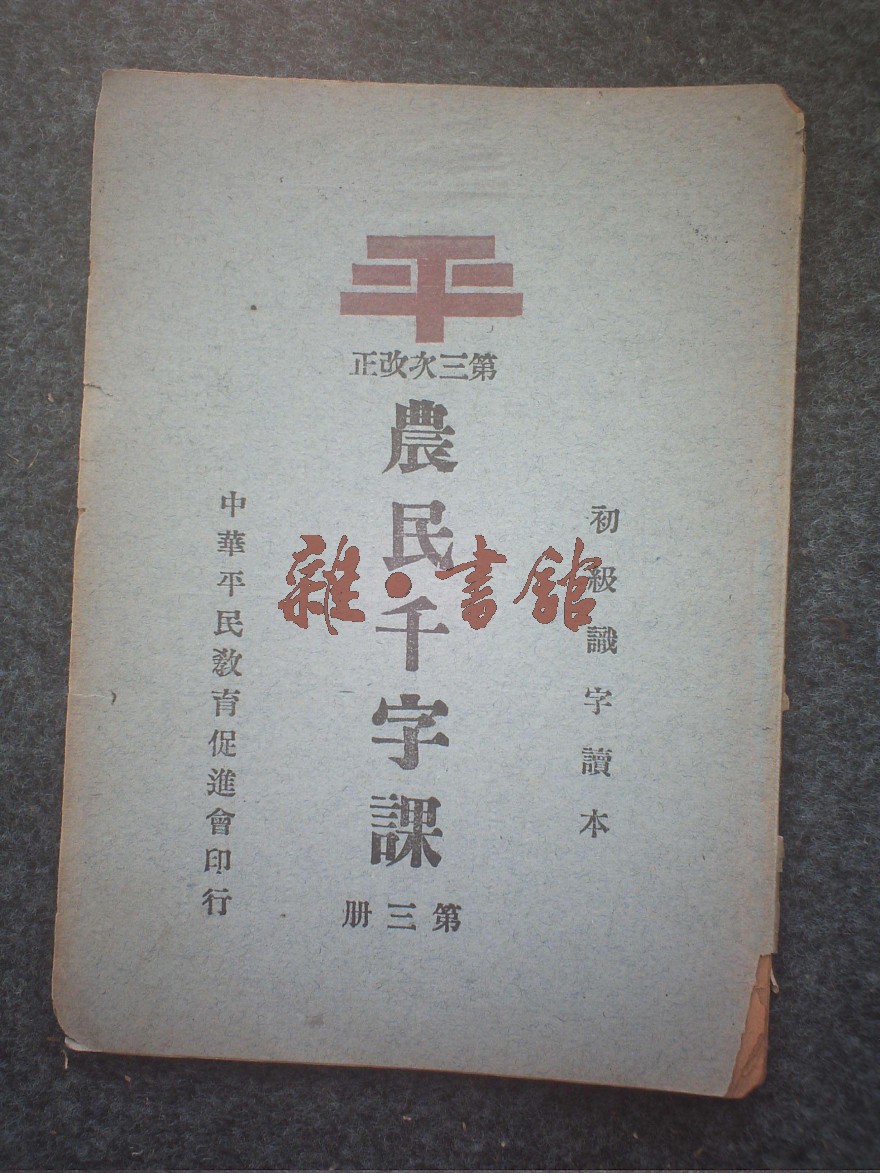 平
第三次改正
初級識字讀本
農民千字課
第三册
中華平民教育促進會印行
雜·書館